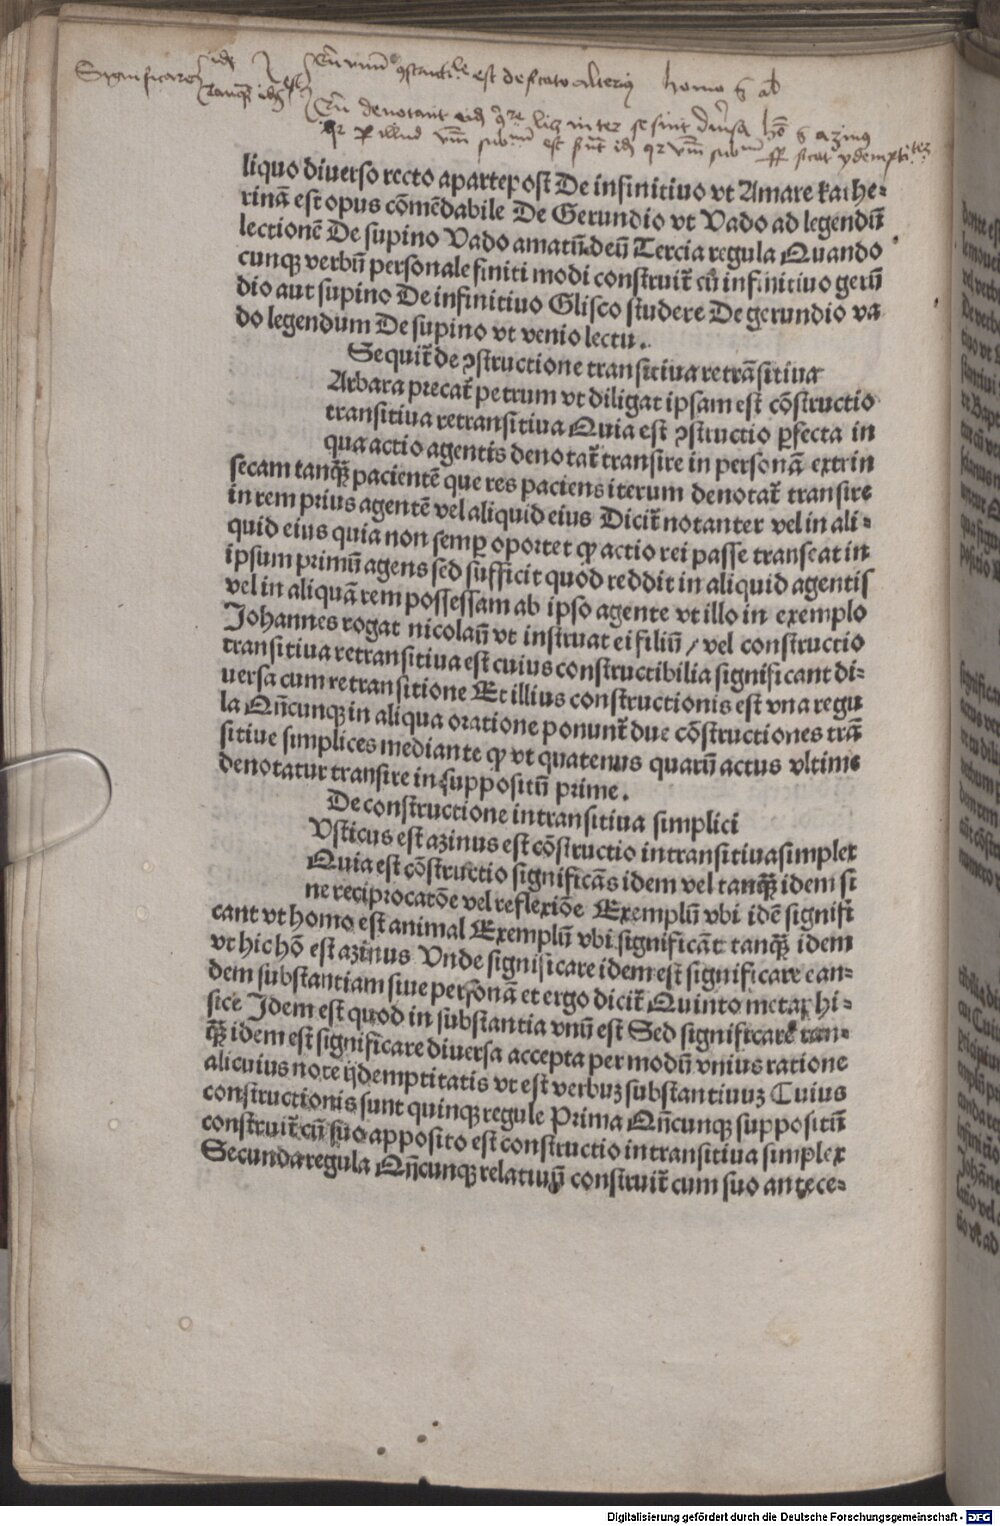 Significare
idē
tanqȝ idē
est
homo est
liquo diuerso recto aparte post De infinitiuo vt Amare kathe-
rinā est opus cōmēdabile De Gerundio vt Vado ad legendū
lectionē De supino Vado amatū deū Tercia regula Quando
cunqȝ verbū personale finiti modi construit̄ cū infinitiuo gerū
dio aut supino De infinitiuo Glisco studere De gerundio va
do legendum De supino vt venio lectu.
Sequit̄ de ꝯstructione transitiua retrāsitiua
Arbara precat̄ petrum vt diligat ipsam est cōstructio
transitiua retransitiua Quia est ꝯstructio ꝑfecta in
qua actio agentis denotat̄ transire in personā extrin
secam tanqȝ̄ pacientē que res paciens iterum denotat̄ transire
in rem prius agentē vel aliquid eius Dicit̄ notanter vel in ali-
quid eius quia non semꝑ oportet ꝙ actio rei passe transeat in
ipsum primū agens sed sufficit quod reddit in aliquid agentis
vel in aliquā rem possessam ab ipso agente vt illo in exemplo
Johannes rogat nicolaū vt instruat ei filiū / vel constructio
transitiua retransitiua est cuius constructibilia significant di-
uersa cum retransitione Et illius constructionis est vna regu
la Qn̄cunqȝ in aliqua oratione ponunt̄ due cōstructiones trā
sitiue simplices mediante ꝙ vt quatenus quarū actus vltime
denotatur transire in suppositū prime.
De constructione intransitiua simplici
Vsticus est azinus est cōstructio intransitiua simplex
Quia est cōstructio significās idem vel tanqȝ̄ idem si
ne reciprocatōe vel reflexiōe Exemplū vbi idē signifi
cant vt homo est animal Exemplū vbi significāt tanqȝ̄ idem
vt hic hō est azinus Vnde significare idem est significare ean-
dem substantiam siue personā et ergo dicit̄ Quinto metaphi-
sice Idem est quod in substantia vnū est Sed significare tan-
qȝ̄ idem est significare diuersa accepta per modū vnius ratione
alicuius note ijdemptitatis vt est verbuȝ substantiuuȝ Cuius
constructionis sunt quinqȝ regule Prima Qn̄cunqȝ suppositū
construit̄ cū suo apposito est constructio intransitiua simplex
Secunda regula Qn̄cunqȝ relatiuū construit̄ cum suo antece-
Digitalisierung gefördert durch die Deutsche Forschungsgemeinschaft - DFG